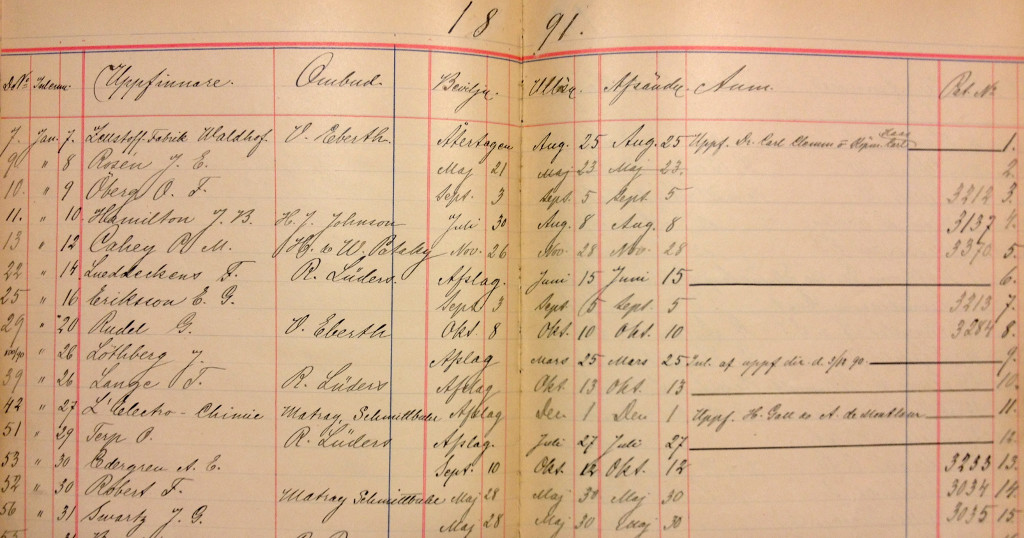 1891.
D. No. Inkom. Uppfinnare. Ombud. Bevilj. Utlösn. Afsändn. Anm. Pat. No
7. Jan. 7. Zellstoff-Fabrik Waldhof. V. Eberth. Återtagen Aug. 25 Aug. 25 Uppf. Dr. Carl Haas 1.
9 " 8 Rosén J. E. Maj 21 Maj 23 Maj 23. 2.
10. " 9 Öberg O. F. Sept. 3 Sept. 5 Sept. 5 3212 3.
11. " 10 Hamilton J. B. H. J. Johnson Juli 30 Aug. 8 Aug. 8 3137 4.
13 " 12 R. M. H. & W. Pataky Nov. 26 Nov. 28 Nov. 28 3370 5.
22 " 14 Lueddeckens F. R. Lüders. Afslag. Juni 15 Juni 15 6.
25 " 16 Eriksson E. G. Sept 3 Sept 5 Sept. 5 3213 7.
29 " 20 Rudel G. V. Eberth Okt. 8 Okt. 10 Okt. 10 3284 8.
" 26 Löthberg J. Afslag Mars 25 Mars 25 Inl. af uppf. dir. d. 90. 9.
39 " 26 Lange F. R. Lüders Afslag Okt. 13 Okt. 13 10.
42 " 27 L'Electro-Chimie Matray, Schmittbuhr Afslag Dec 1 Dec 1 Uppf. H. Gall A. de Montlaur 11.
51 " 29 Terp O. R. Lüders Afslag. Juli 27 Juli 27 12.
53 " 30 Cedergren A. E. Sept. 10 Okt. 12 Okt. 12 3233 13.
52 " 30 Robert F. Matray Schmittbuhr Maj 28 Maj 30 Maj 30 3034 14.
56 " 31 Swartz J. G. Maj 28 Maj 30 Maj 30 3035 15